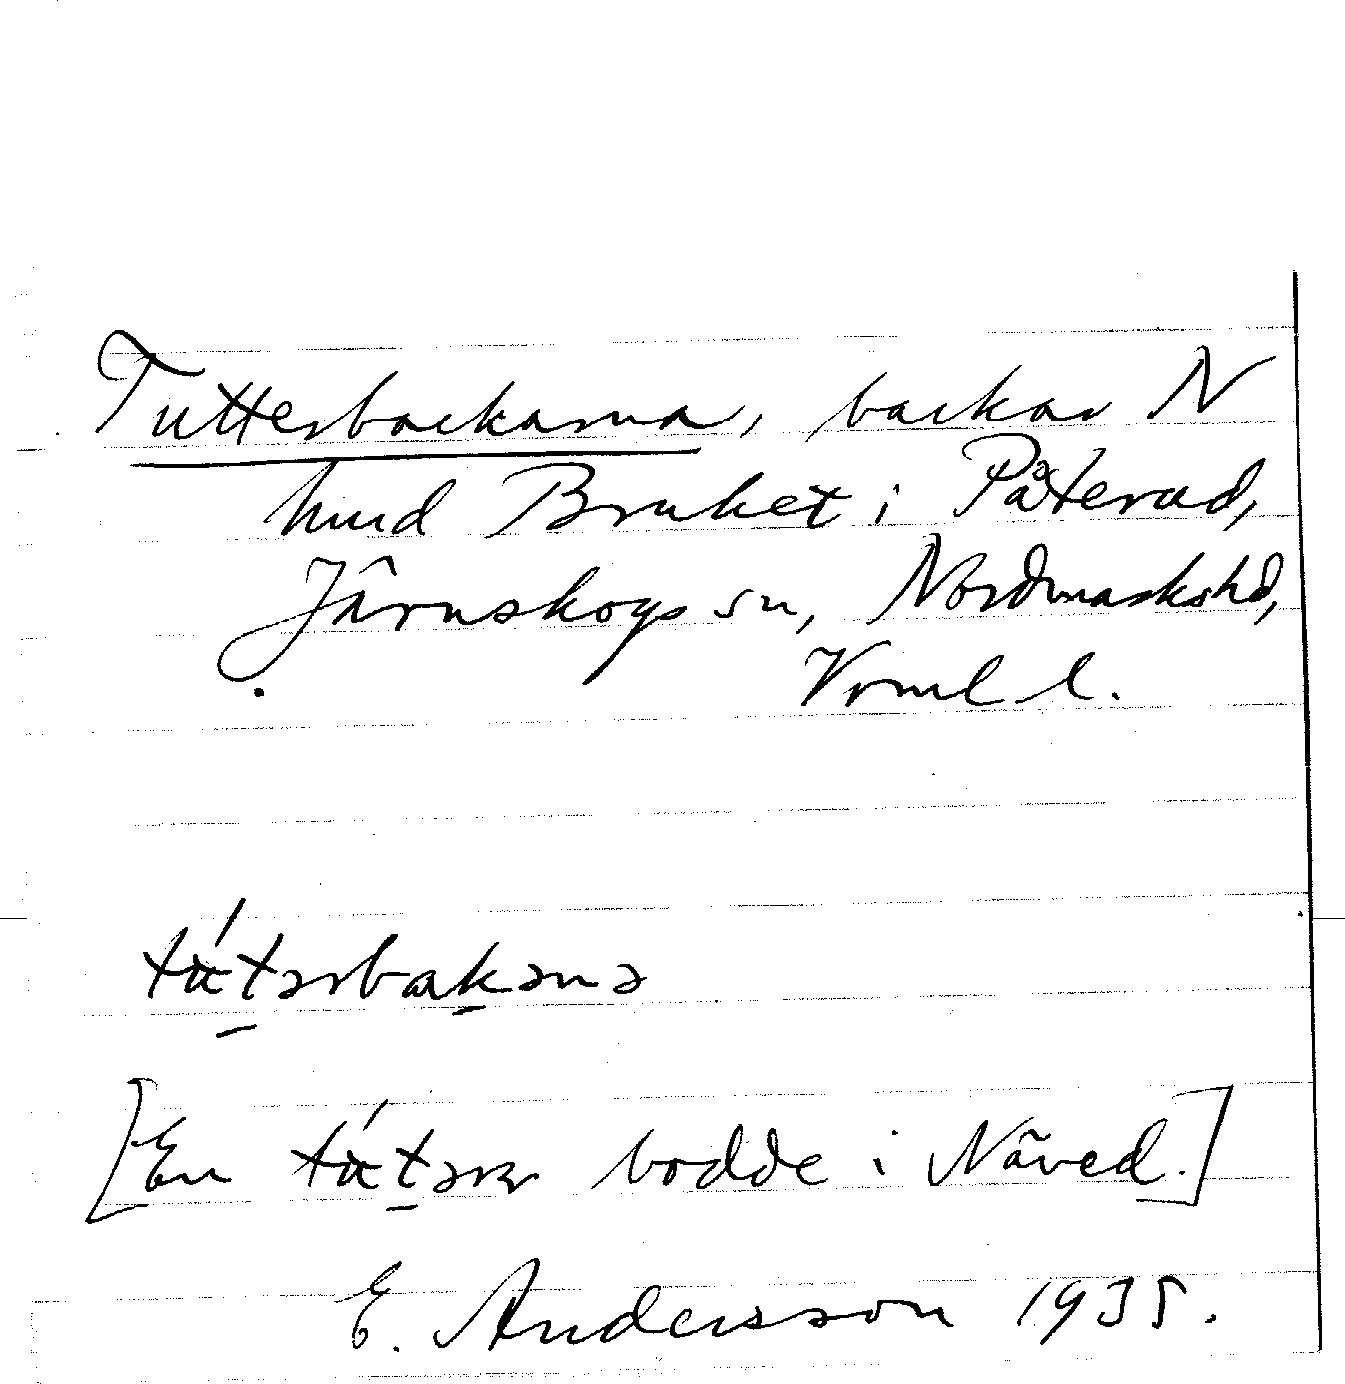 Tutterbackarna, backar N
hind Bruket i Påterud,
Järnskogs sn, Nordmarkshd,
Vrml l.
tút̲ərbak̲əna
[En tút̲ər bodde i Näved.]
E. Andersson 1935.